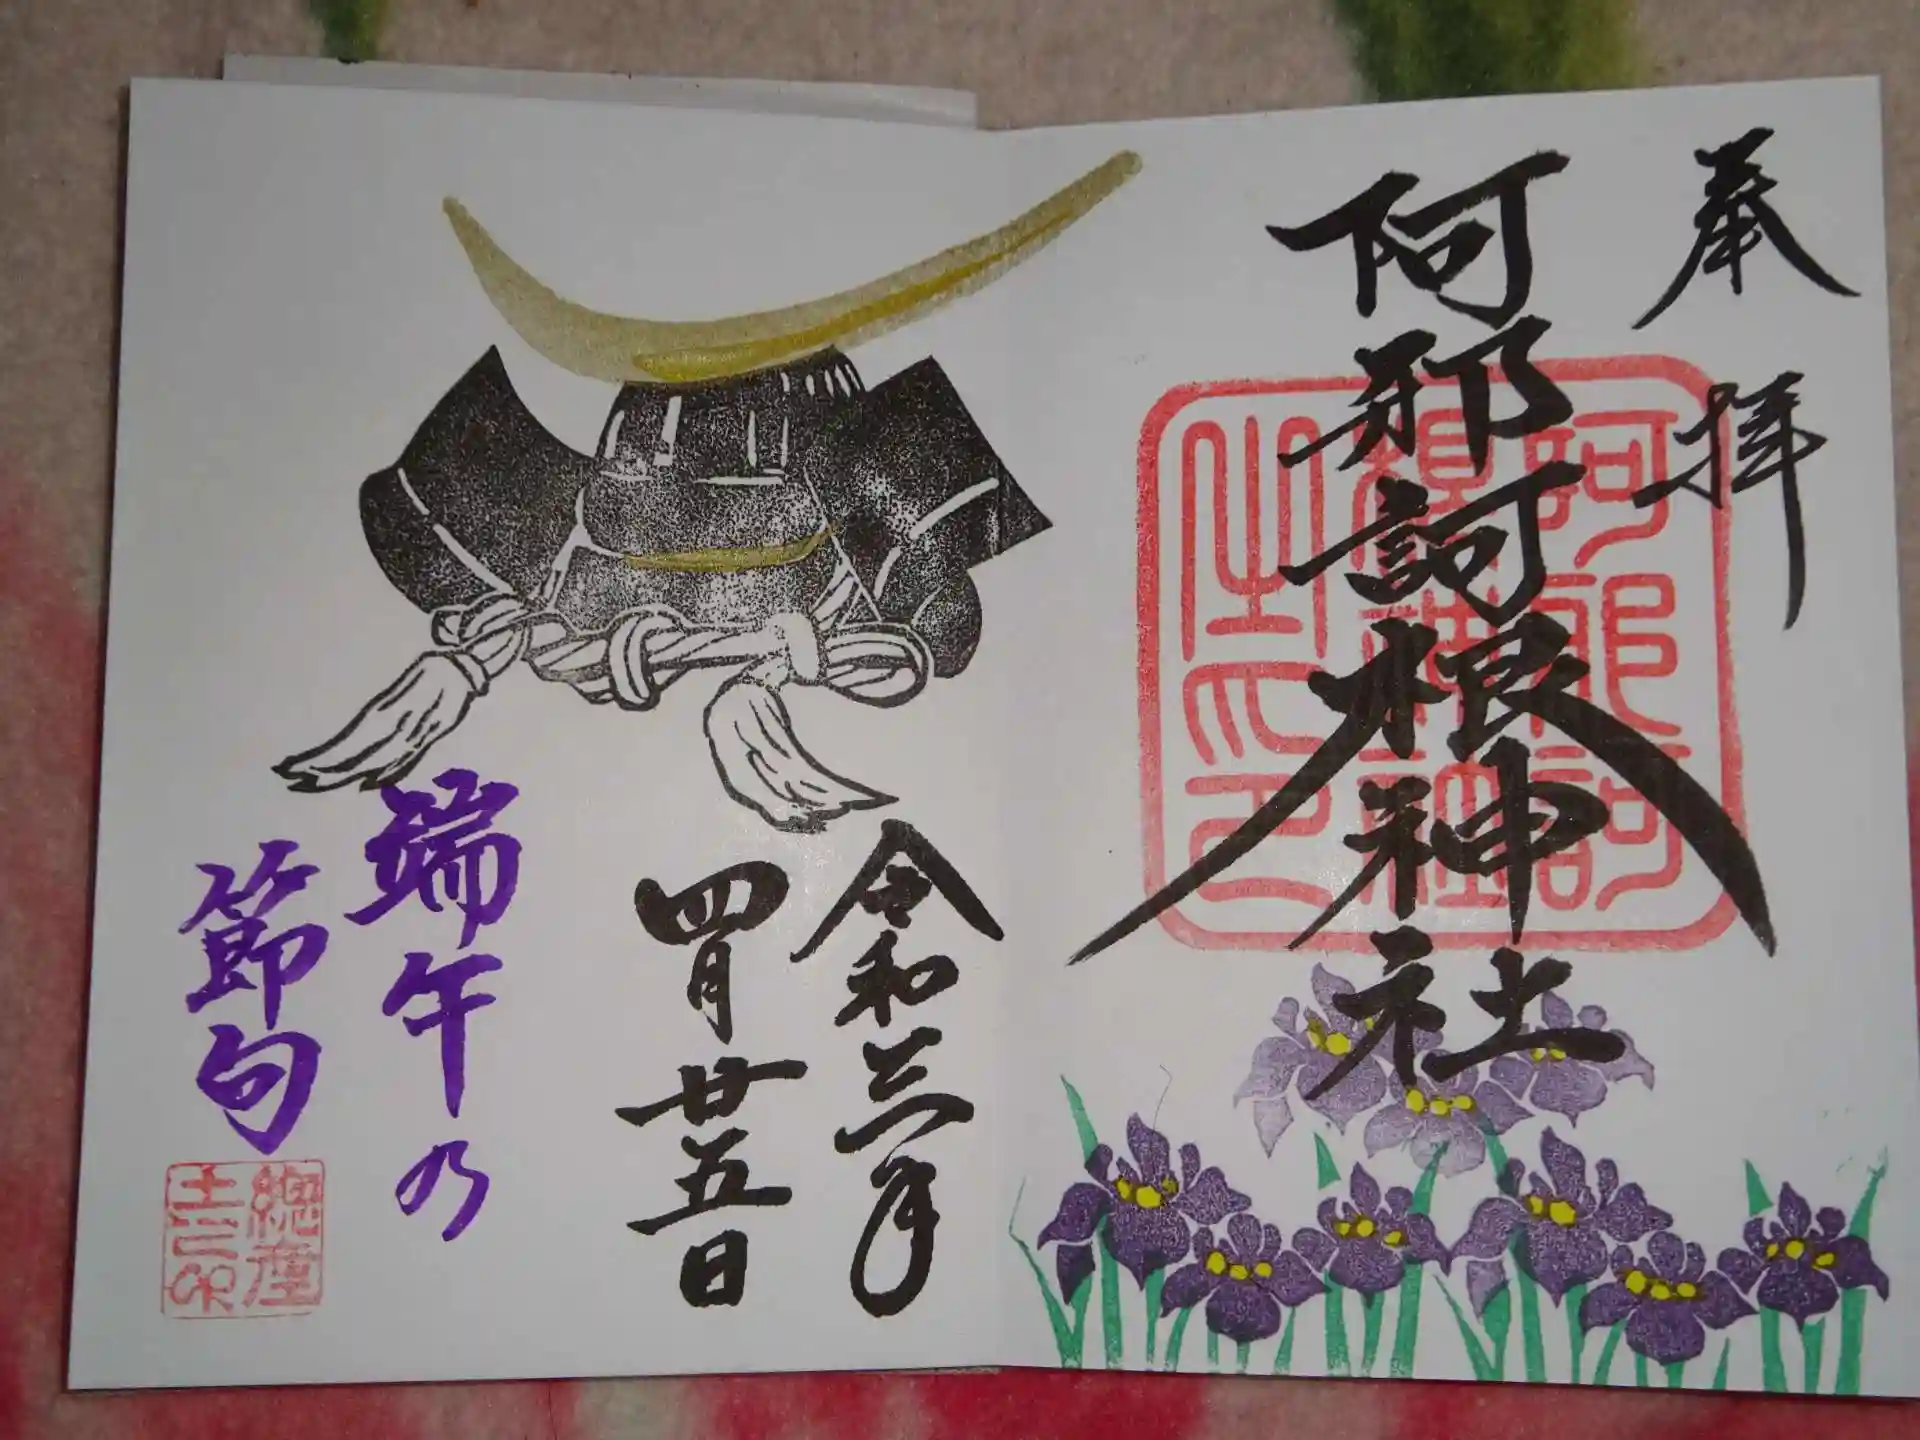 奉拝
阿邪訶根神社
阿邪訶
根神社
之印
令和三年
四月廿五日
端午乃
節句
總産
土之印